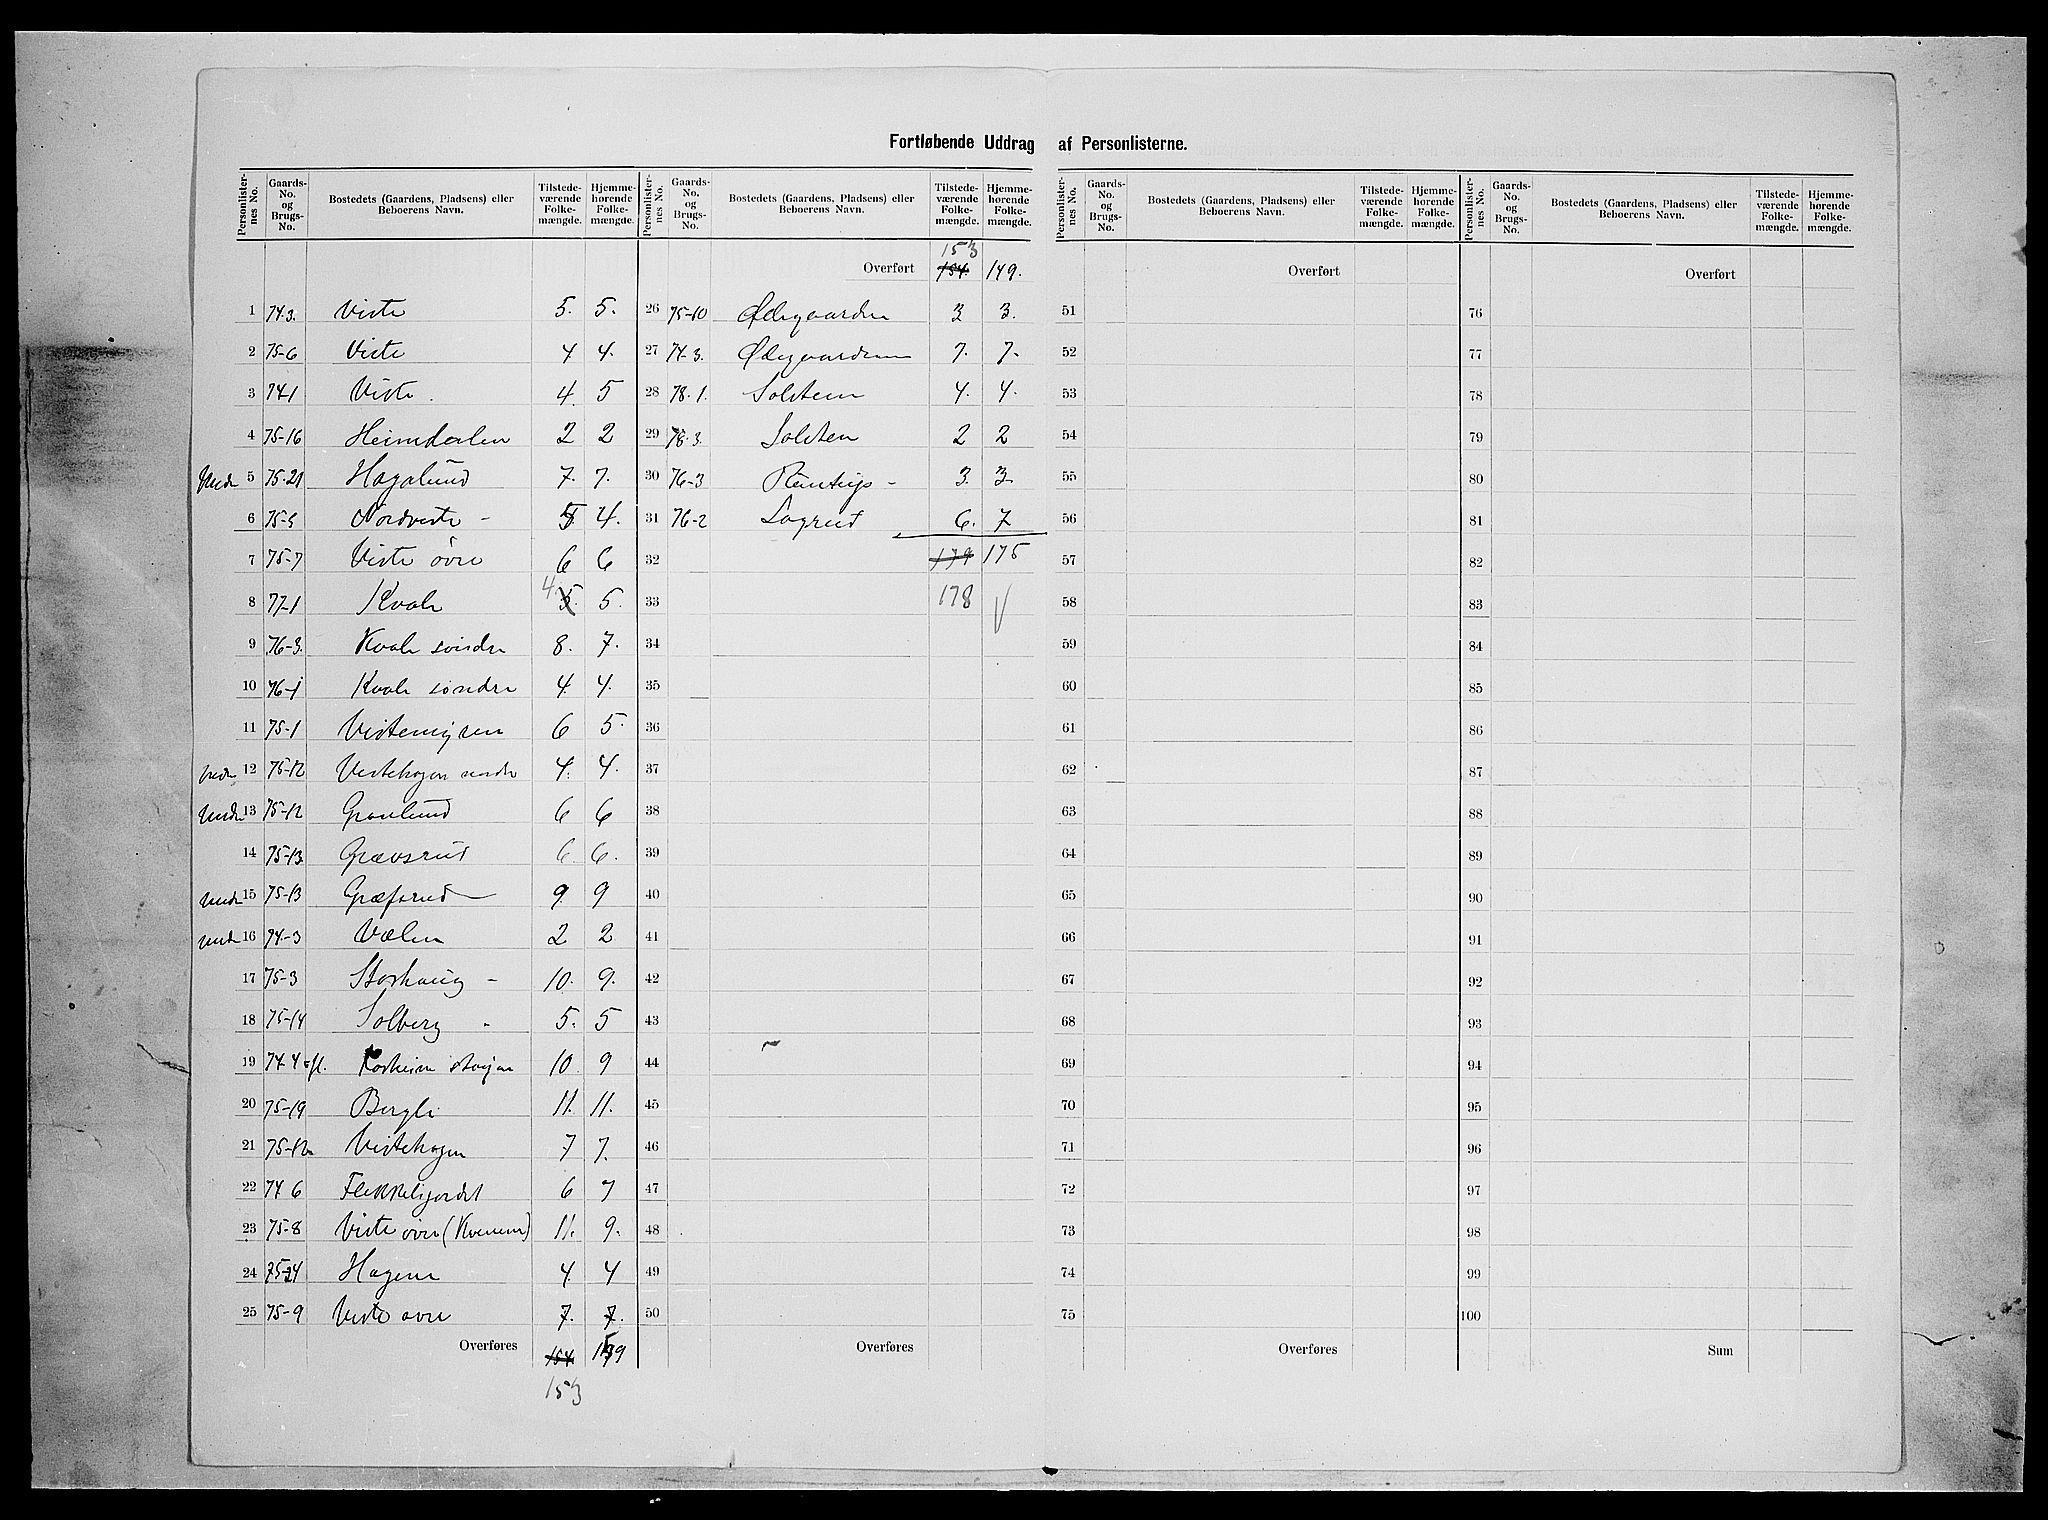 Fortløbende Uddrag af Personlisterne.
Personlisternes No. Gaards-No. og Brugs-No. Bostedets (Gaardens, Pladsens) eller Beboerens Navn. Tilstedeværende Folkemængde. Hjemmehørende Folkemængde.
Personlisternes No. Gaards-No. og Brugs-No. Bostedets (Gaardens, Pladsens) eller Beboerens Navn. Tilstedeværende Folkemængde. Hjemmehørende Folkemængde.
Personlisternes No. Gaards-No. og Brugs-No. Bostedets (Gaardens, Pladsens) eller Beboerens Navn. Tilstedeværende Folkemængde. Hjemmehørende Folkemængde.
Personlisternes No. Gaards-No. og Brugs-No. Bostedets (Gaardens, Pladsens) eller Beboerens Navn. Tilstedeværende Folkemængde. Hjemmehørende Folkemængde.
1 74.3. Viste 5. 5.
2 75-6 Viste 4 4.
3 74-1 Viste. 4. 5
4 75-16 Heimdalen 2 2
5 75-21 Hagalund 7. 7.
6 75-5 Nordviste - 5 4.
7 75-7 Viste övre 6 6
8 77-1 Kvale 4. 5. 5.
9 76-3. Kvale söndre 8. 7.
10 76-1 Kvale söndre 4. 4.
11 75-1 Vistemyren 6 5.
12 75-12 Vistehagen nordre 4. 4.
13 75-12 Granlund 6 6
14 75-13 Grævsrud 6. 6.
15 75-13 Græfsrud 9. 9
16 74-3 Vælen 2 2
17 75-3 Storhaug - 10. 9.
18 75-14 Solberg - 5. 5
19 74.4 ofl. 10. 9
20 75-19 Bergli 11. 11.
21 75-12 Vistehagen 7 7.
22 74 6 Flekkeligjordet 6 7
23 75-8 Viste övre (Kvennen) 11. 9.
24 75-24 Hagene 4. 4
25 75-9 Viste övre 7. 7.
Overføres 154 159
153
153
Overført 154. 149.
26 75-10 Ødegaarden 3 3.
27 74-3. Ødegaarden 7. 7.
28 78.1. Solsten 4. 4.
29 78.3. Solsten 2 2
30 76-3 3. 3
31 76-2 Lagrud 6. 7
32 179 175
33 178
34
35
36
37
38
39
40
41
42
43
44
45
46
47
48
49
50
Overføres
Overført
51
52
53
54
55
56
57
58
59
60
61
62
63
64
65
66
67
68
69
70
71
72
73
74
75
Overføres
Overført
76
77
78
79
80
81
82
83
84
85
86
87
88
89
90
91
92
93
94
95
96
97
98
99
100
Sum